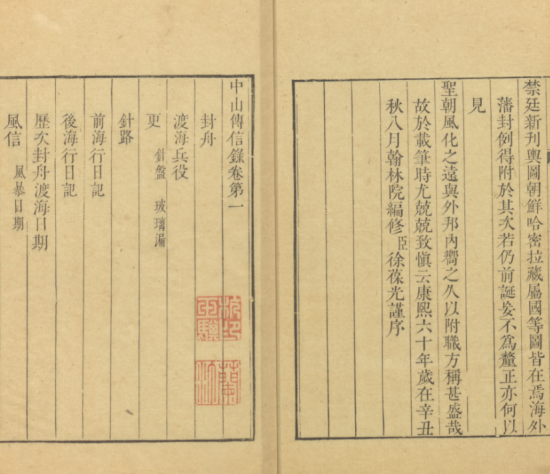 禁廷新刊輿圖朝鮮哈密拉藏屬國等圖皆在焉海外
藩封例得附於其次若仍前誕妄不為釐正亦何以
見
聖朝風化之遠與外邦內嚮之久以附職方稱甚盛哉
故於載筆時尤兢兢致慎云康熙六十年歲在辛丑
秋八月翰林院編修臣徐葆光謹序
中山傳信錄卷第一
封舟
渡海兵役
更 針盤 玻璃漏
針路
前海行日記
後海行日記
歷次封舟渡海日期
風信 風暴日期